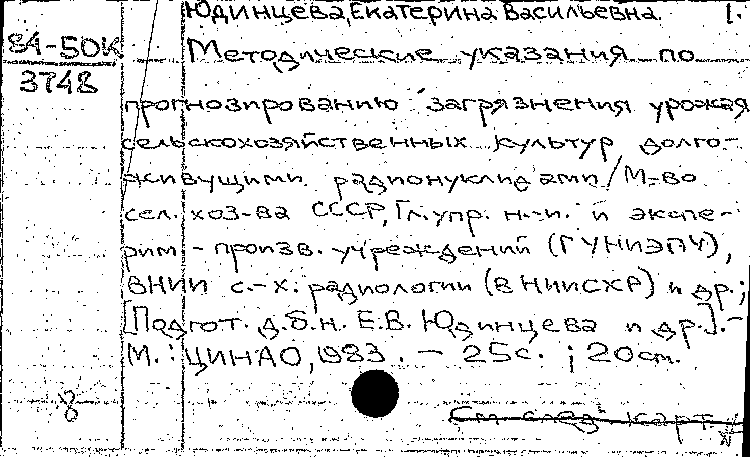 Юдинцева, Екатерина Васильевна. 1.
84-50К Методические указания по
3748
прогнозированию загрязнения урожая
сельскохозяйственных культур долго-
живущими радионуклидами / М-во
сел. хоз-ва СССР, Гл. упр. н.-и. и экспе-
рим-произв. учреждений (ГУНИЭПУ),
ВНИИ с.-х. радиологии (ВНИИСХР) и др.;
[Подгот. д.б.н. Е.В. Юдинцева и др.]. -
М.: ЦИНАО, 1983. - 25с.; 20см.
8
См след карт.